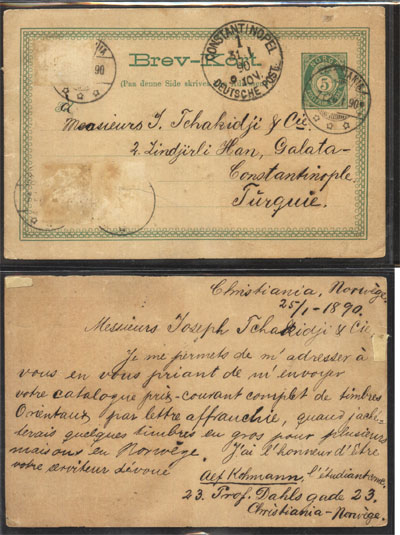 Brev-Kort.
(Paa denne Side skrives
CONSTANTINOPEL
1
31 1
90
DEUTSCHE POST
NORGE
5
90
90
à
Messieurs J. Tchakidji & Cie
2. Zindjirli Han, Galata-
Constantinople.
Turquie.
Christiania, Norvège.
25/1-1890.
Messieurs Joseph Tchakidji & Cie
Je me permets de m'adresser à
vous en vous priant de m'envoyer
votre catalogue prix-courant complet de timbres
Orientaux, par lettre affranchie, quand j'achè-
terais quelques timbres en gros pour plusieurs
maisons en Norvège. J'ai l'honneur d'être
votre serviteur dévoué
Kohmann, l'étudiant
23. Prof. Dahls gade 23.
Christiania-Norvège.